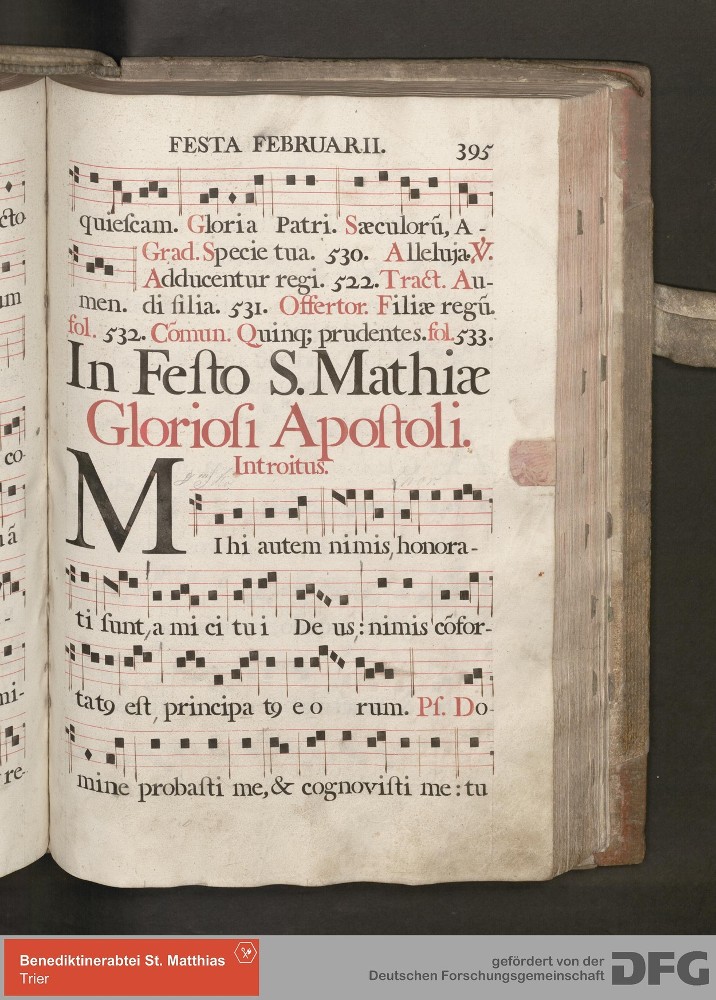 FESTA FEBRUARII.
395
quieſcam. Gloria Patri. Sæculorũ, A-
Grad. Specie tua. 530. Alleluja. V̇.
Adducentur regi. 522. Tract. Au-
men. di filia. 531. Offertor. Filiæ regũ.
fol. 532. Cõmun. Quinq; prudentes. fol. 533.
In Feſto S. Mathiæ
Glorioſi Apoſtoli.
Introitus.
MIhi autem nimis, honora-
ti ſunt, a mi ci tu i De us,: nimis cõfor-
tatꝯ eſt, principa tꝯ e o rum. Pſ. Do-
mine probaſti me, & cognoviſti me: tu
cto
um
co-
ã
-
mi-
re-
Benediktinerabtei St. Matthias
Trier
gefördert von der
Deutschen Forschungsgemeinschaft
DFG